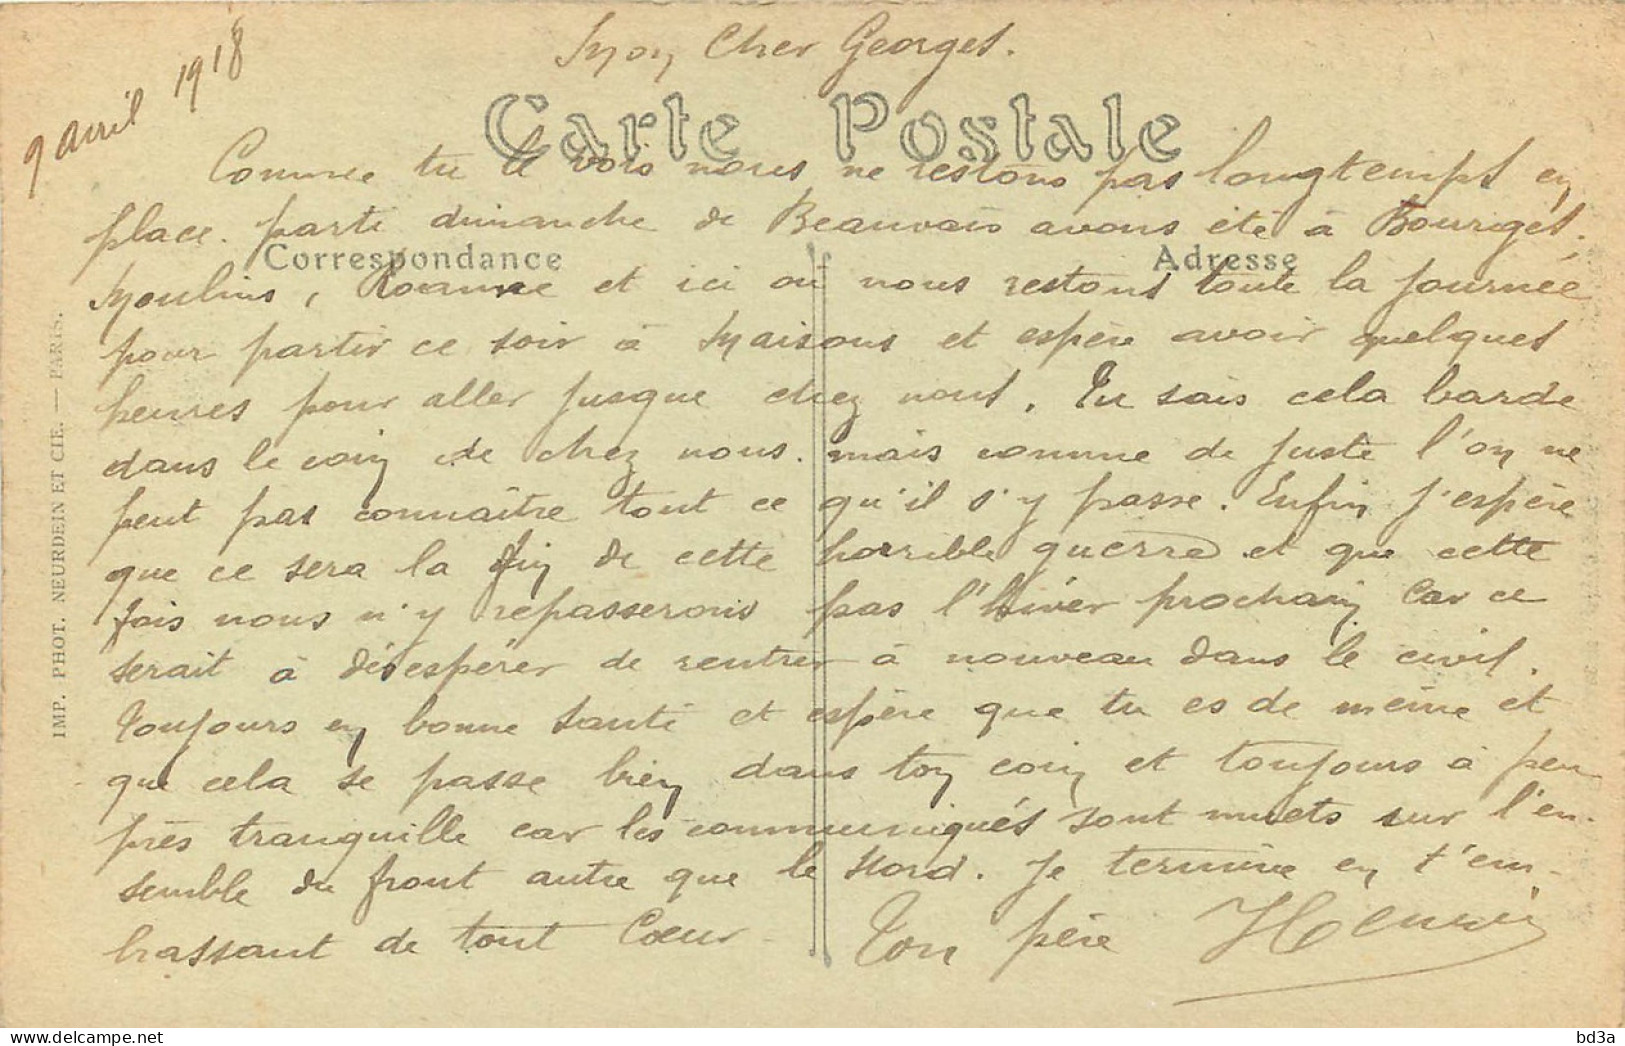 9 avril 1918
Mon Cher Georges.
Carte Postale
Comme tu le vois nous ne restons pas longtemps en
place. parti dimanche de Beauvais avons été à Bourges.
Correspondance
Adresse
Moulins, Roanne et ici où nous restons toute la journée
pour partir ce soir à Maisons et espère avoir quelques
heures pour aller jusque chez nous. Tu sais cela barde
dans le coin de chez nous. mais comme de juste l'on ne
peut pas connaître tout ce qu'il s'y passe. Enfin j'espère
que ce sera la fin de cette horrible guerre et que cette
fois nous n'y repasserons pas l'hiver prochain Car ce
serait à désespérer de rentrer à nouveau dans le civil.
Toujours en bonne santé et espère que tu es de même et
que cela se passe bien dans ton coin et toujours à peu
près tranquille car les communiqués sont muets sur l'en-
semble du front autre que le Nord. Je termine en t'em-
brassant de tout Cœur
Ton père Henri
IMP. PHOT. NEURDEIN ET CIE. — PARIS.
delcampe.net
bd3a